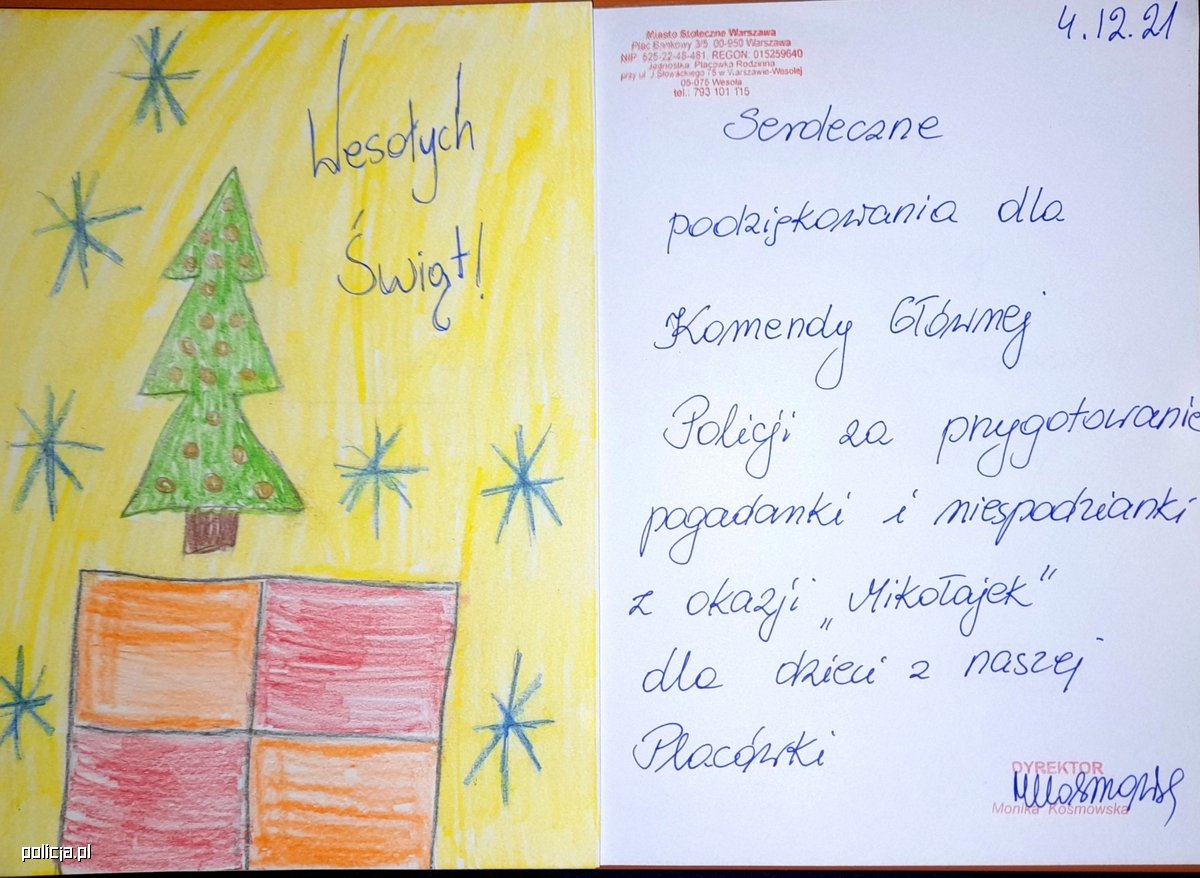 Wesołych
Świąt!
4.12.21
Miasto Stołeczne Warszawa
Plac Bankowy 3/5, 00-950 Warszawa
NIP: 525-22-48-481, REGON: 015259640
Jednostka: Placówka Rodzinna
przy ul. J.Słowackiego 75 w Warszawie-Wesołej
05-075 Wesoła
tel.: 793 101 115
Serdeczne
podziękowania dla
Komendy Głównej
Policji za przygotowanie
pogadanki i niespodzianki
z okazji „Mikołajek”
dla dzieci z naszej
Placówki
DYREKTOR
Monika Kosmowska
policja.pl